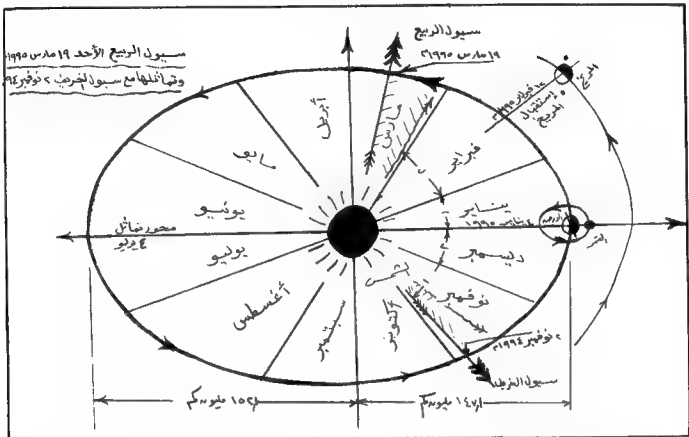 سيول الربيع الأحد ١٩ مارس ١٩٩٥
وتماثلها مع سيول الخريف ٢ نوفمبر ٩٤
سيول الربيع
١٩ مارس ١٩٩٥م
المريخ
إستقبال المريخ
أبريل
مارس
فبراير
مايو
يناير
٤ يناير ١٩٩٥
يونيو
محور تماثل
٤ يوليو
يوليو
ديسمبر
الأرض
القمر
الشمس
أغسطس
سبتمبر
أكتوبر
نوفمبر
٢ نوفمبر ١٩٩٤م
سيول الخريف
١٥٢٫١ مليون كم
١٤٧٫١ مليون كم